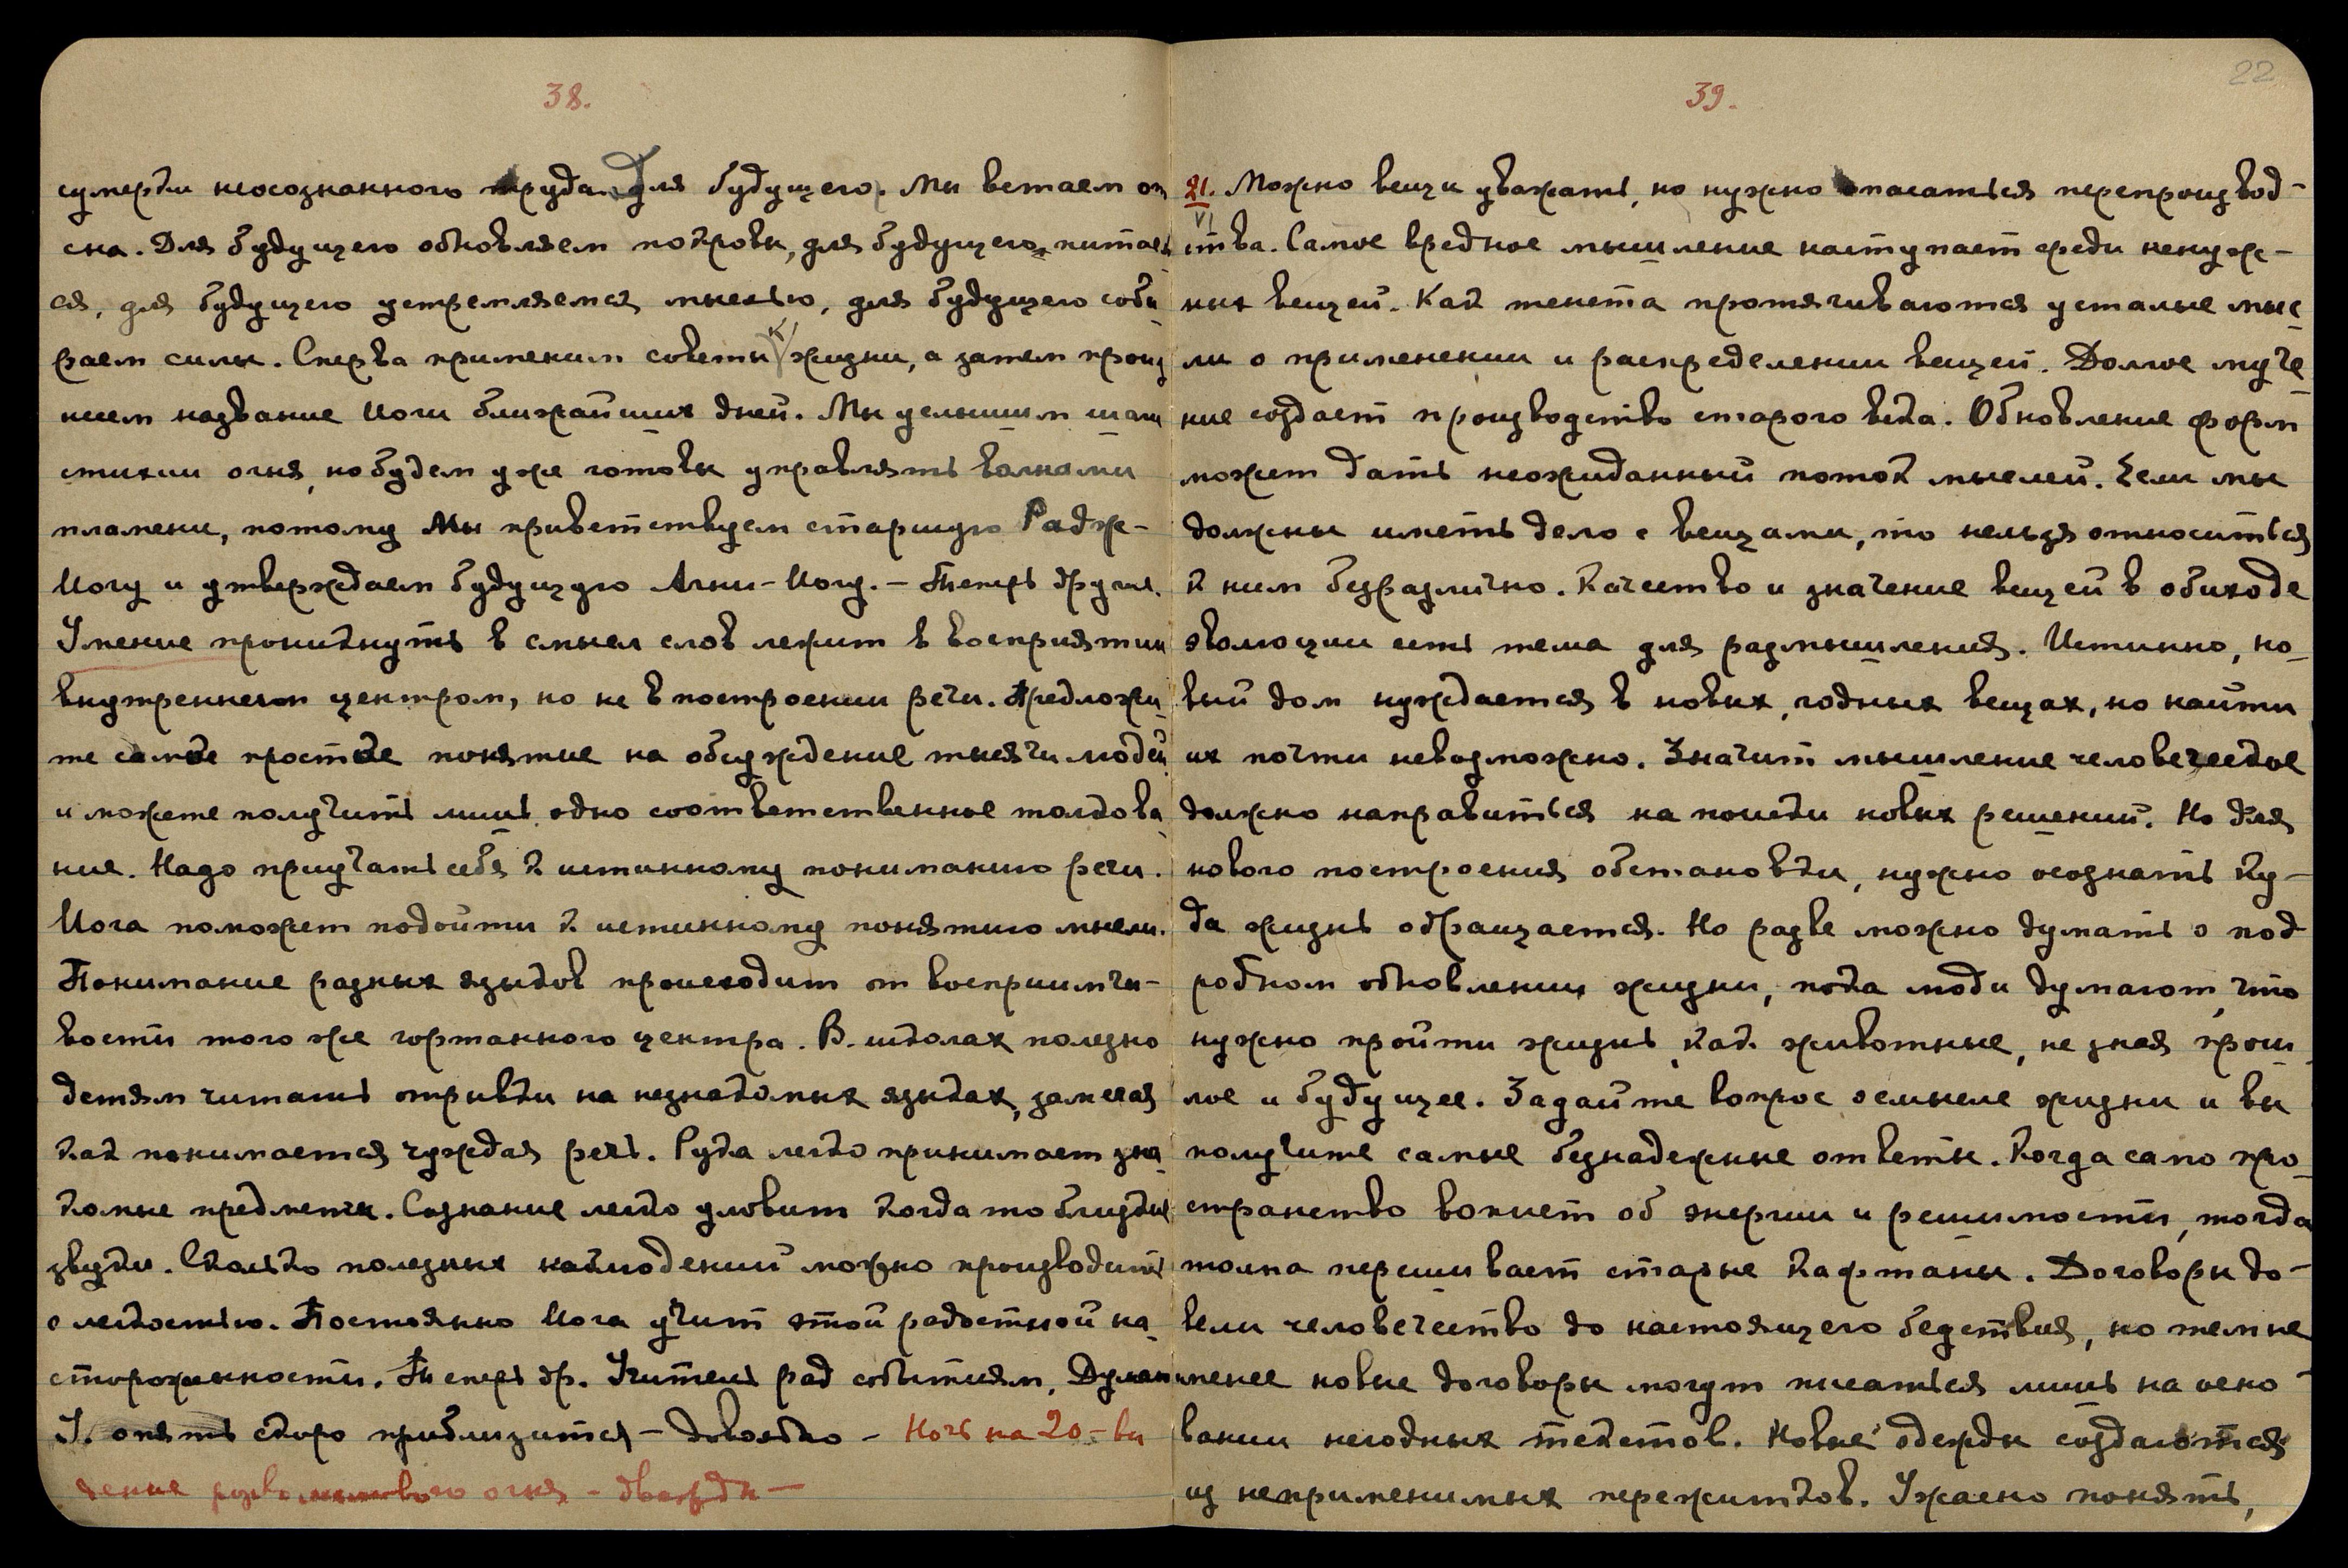 38.
сумерки неосознанного труда. Для будущего. Мы встаем от
сна. Для будущего обновляем покровы, для будущего питаем
ся, для будущего устремляемся мыслью, для будущего соби
раем силы. Сперва применим советы жизни, а затем произ
несем название Йоги ближайших дней. Мы услышим шаги
стихии огня, но будем уже готовы управлять волнами
пламени, потому Мы приветствуем старшую Раджа-
Йогу и утверждаем будущую Агни-Йогу. — Теперь другое.
Умение проникнуть в смысл слов лежит в восприятии
внутренним центром, но не в построении речи. Предложи
те самое простое понятие на обсуждение тысячи людей
и можете получить лишь одно соответственное толкова
ние. Надо приучать себя к истинному пониманию речи.
Йога поможет подойти к истинному понятию мысли.
Понимание разных языков происходит от восприимчи-
вости того же гортанного центра. В школах полезно
детям читать отрывки на незнакомых языках, замечая
как понимается чуждая речь. Рука легко принимает зна
комые предметы. Сознание легко уловит когда то близкие
звуки. Сколько полезных наблюдений можно производить
с легкостью. Постоянно Йога учит этой радостной на
стороженности. Теперь др. Учитель рад событиям. Думаю
У. опять скоро приблизится — довольно — Ночь на 20 — ви
дение розволилового огня — дважды —
39.
22
21. Можно вещи уважать, но нужно опасаться перепроизвод-
VI
ства. Самое вредное мышление наступает среди ненуж-
ных вещей. Как тенета протягиваются усталые мыс
ли о применении и распределении вещей. Долгое муче
ние создает производство старого века. Обновление форм
может дать неожиданный поток мыслей. Если мы
должны иметь дело с вещами, то нельзя относиться
к ним безразлично. Качество и значение вещей в обиходе
эволюции есть тема для размышления. Истинно, но
вый дом нуждается в новых, годных вещах, но найти
их почти невозможно. Значит мышление человеческое
должно направиться на поиски новых решений. Но для
нового построения обстановки, нужно осознать ку-
да жизнь обращается. Но разве можно думать о под
робном обновлении жизни, пока люди думают, что
нужно пройти жизнь, как животные, не зная прош
лое и будущее. Задайте вопрос о смысле жизни и вы
получите самые безнадежные ответы. Когда само про
странство вопиет об энергии и решимости, тогда
толпа перешивает старые кафтаны. Договоры до-
вели человечество до настоящего бедствия, но тем не
менее новые договоры могут писаться лишь на осно
вании негодных текстов. Новые одежды создаются
из неприменимых пережитков. Ужасно понять,